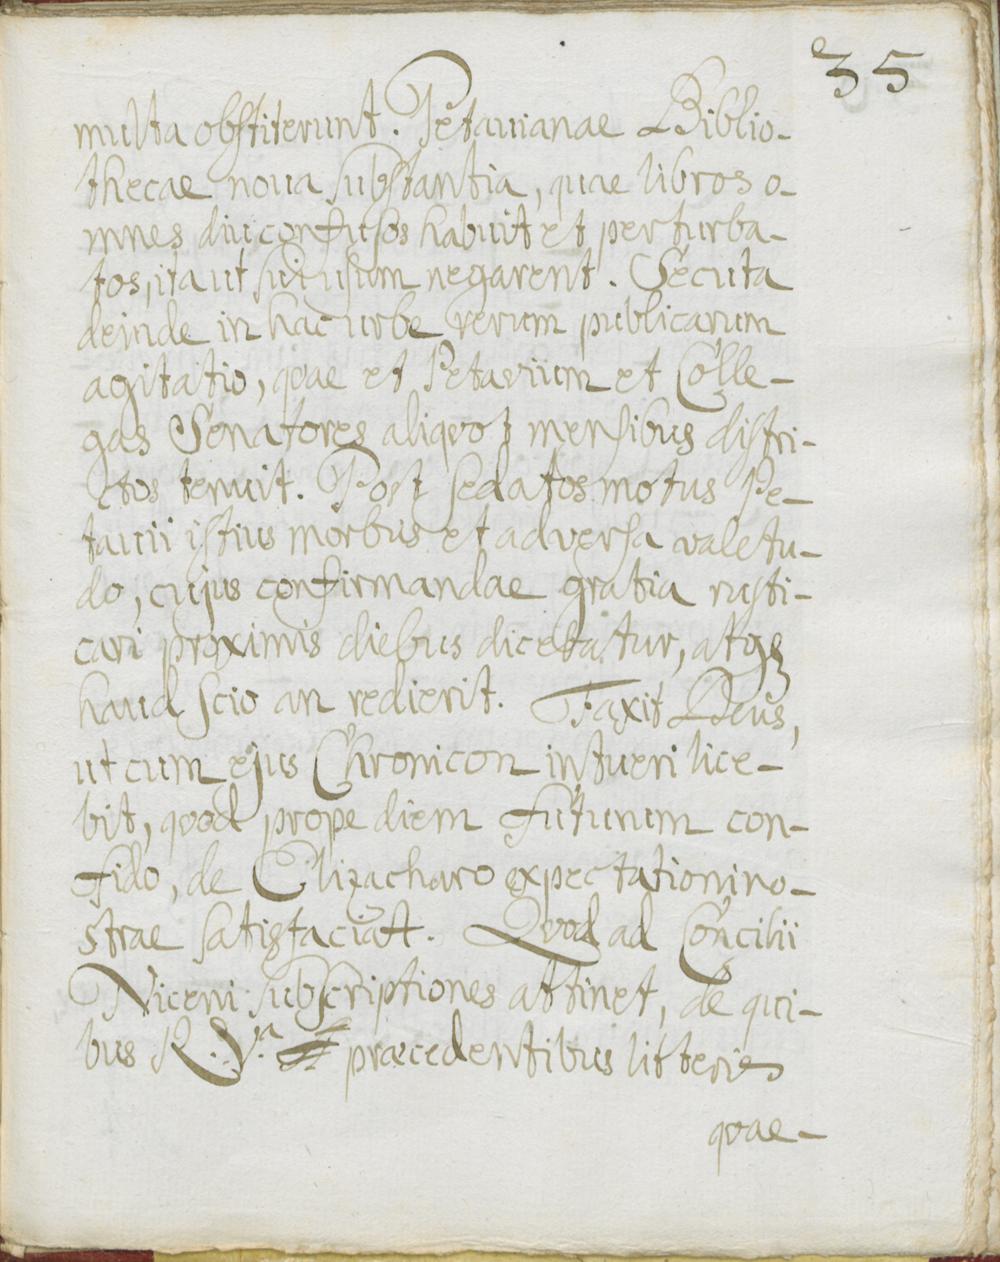 35
multa obstiterunt. Petauianae Biblio-
thecae noua substantia, quae libros o-
mnes diu confusos habuit et perturba-
tos, ita ut sui usum negarent. Secuta
deinde in hac urbe rerum publicarum
agitatio, quae et Petavium et Colle-
gas Senatores aliquoʒ mensibus distri-
ctos tenuit. Post sedatos motus Pe-
tauii istius morbus et adversa valetu-
do, cujus confirmandae gratia rusti-
cari proximis diebus dicebatur, atqʒ
haud scio an redierit. Faxit Deus,
ut cum ejus Chronicon intueri lice-
bit, quod prope diem futurum con-
fido, de Elizacharo expectationi no-
strae satisfaciat. Quod ad Concilii
Niceni subscriptiones attinet, de qui-
bus R. V.ª praecedentibus litteris
quae-